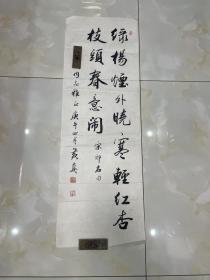 绿杨烟外晓寒轻红杏
枝头春意闹
宋祁名句
同志雅正庚午四月